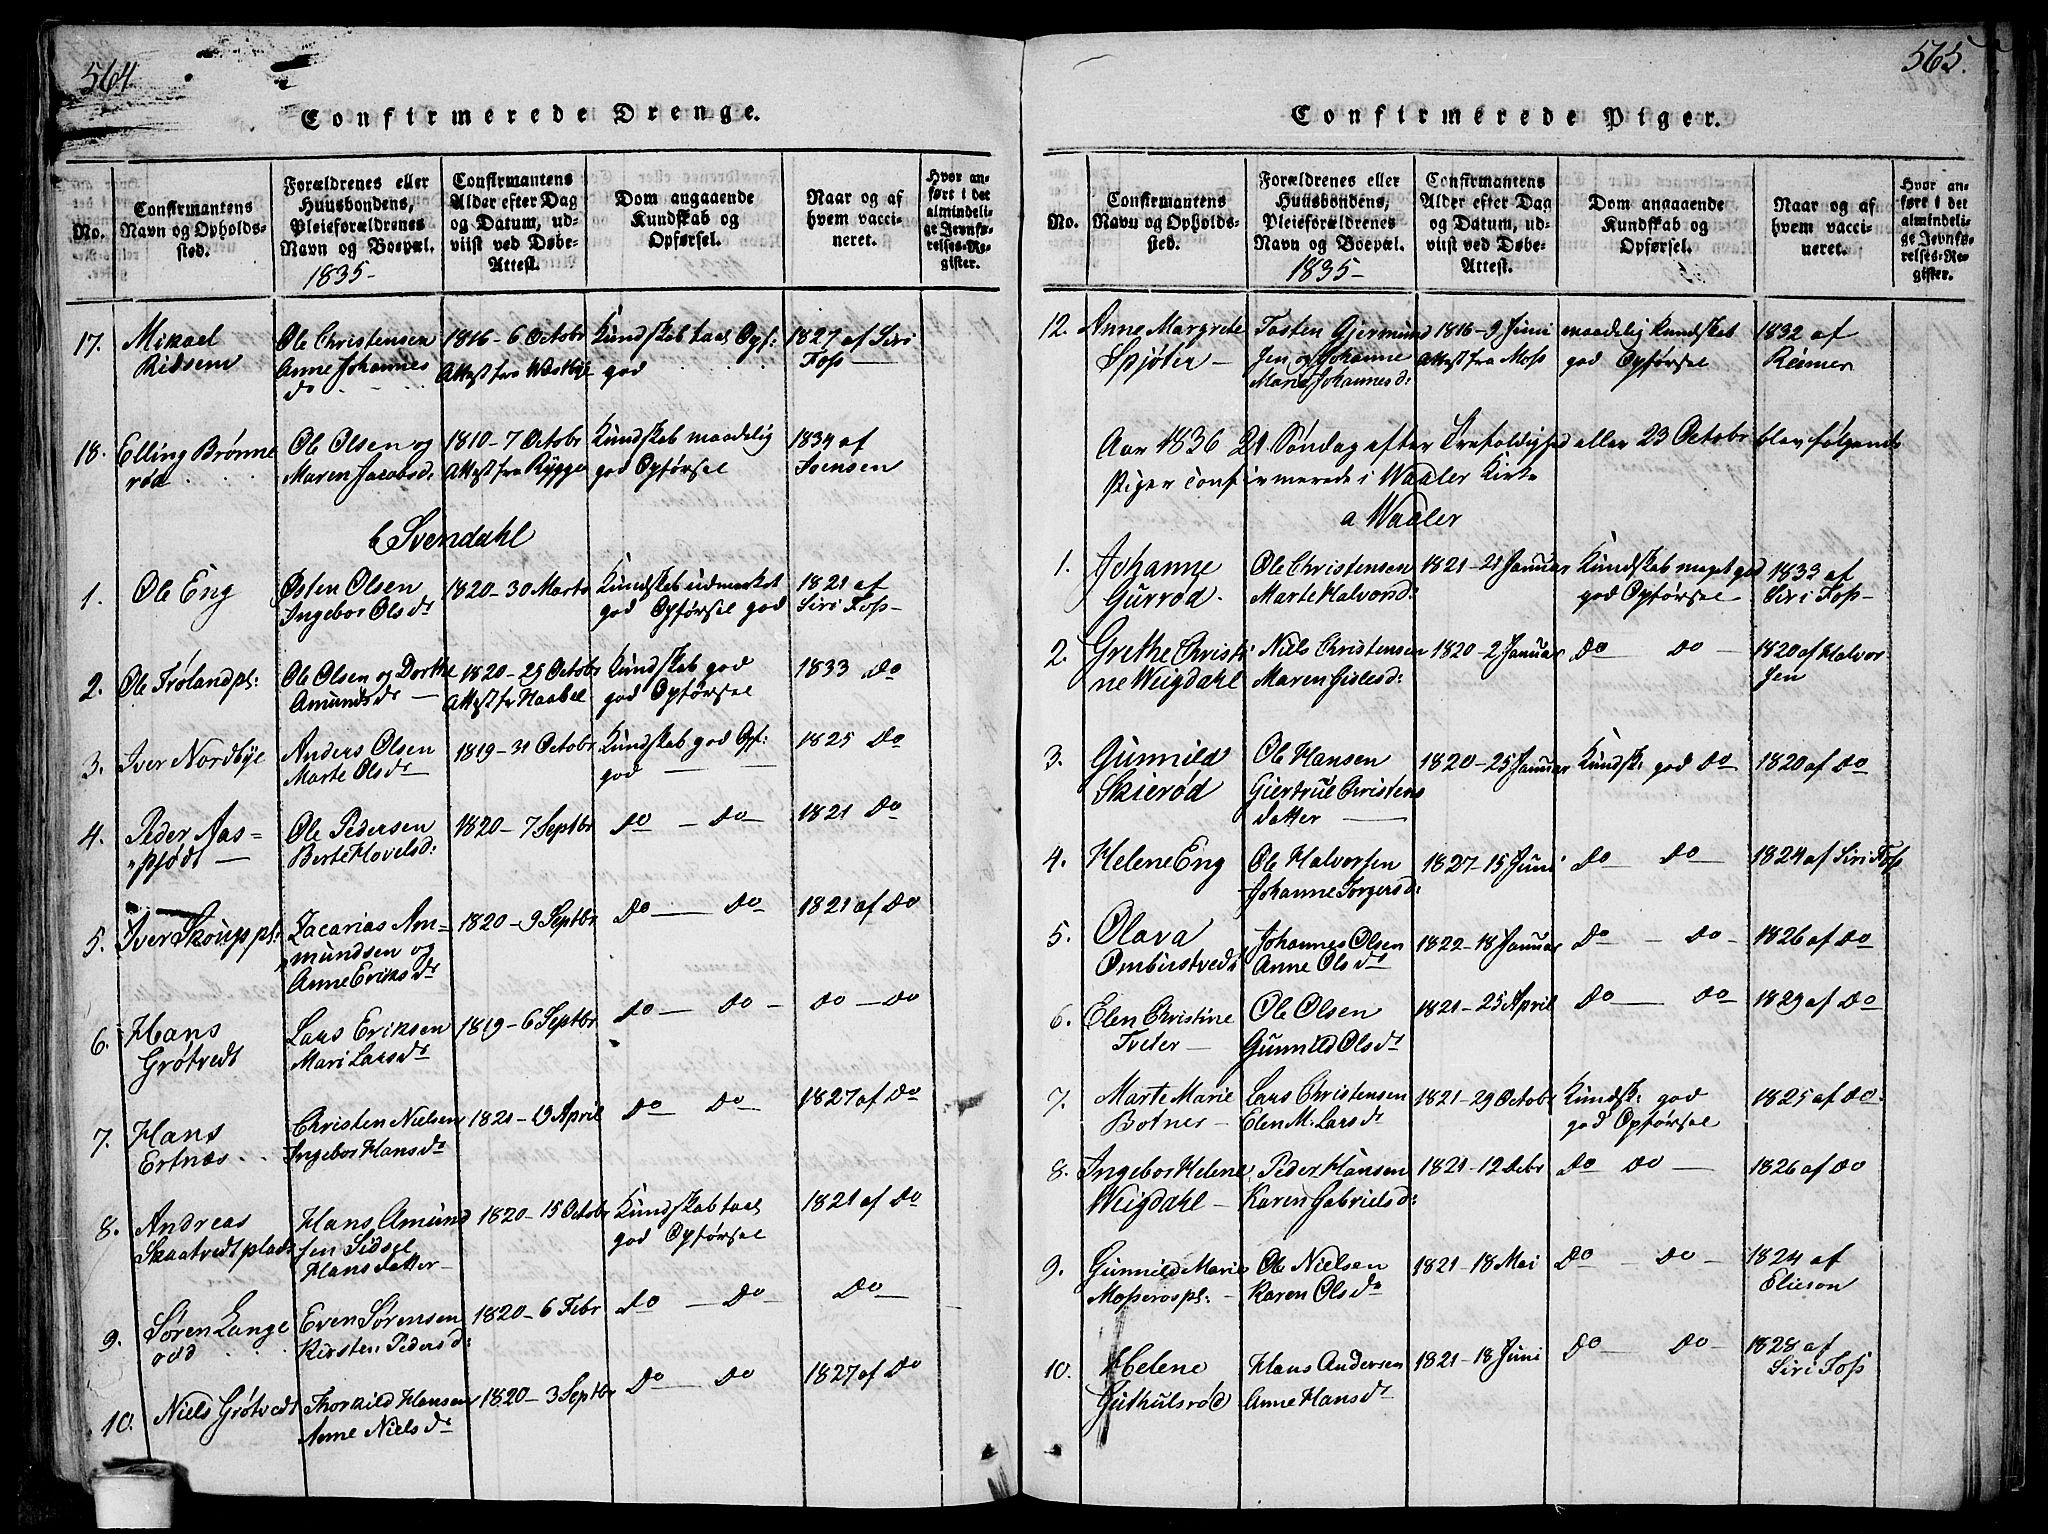 564.
Confirmerede Drenge.
No.
Confirmantens
Navn og Opholds-
sted.
Forældrenes eller
Huusbondens,
Pleieforældrenes
Navn og Boepæl.
1835-
Confirmantens
Alder efter Dag
og Datum, ud-
viist ved Døbe-
Attest.
Dom angaaende
Kundskab og
Opførsel.
Naar og af
hvem vacci-
neret.
Hvor an-
ført i det
almindeli-
ge Jevnfø-
relses-Re-
gister.
17. Mikael Ole Christensen 1816-6 Octobr Kundskab taal Opf: 1827 af Siri
Ridsem Anne Johannes Attest fra Westbye god Foss
ds
18. Elling Brønne Ole Olsen og 1810-7 Octobr Kundskab maadelig 1834 af
rød Maren Jacobsd: Attest fra Rygge god Opførsel Svensen
b Svendahl
1. Ole Eng Østen Olsen 1820-30 Marts Kundskab udmærket 1821 af
Ingebor Olsdr god Opførsel god Siri Foss-
2. Ole Frølandpl: Ole Olsen og Dorthe 1820-29 Octobr Kundskab god 1833 do
Amundsdr Attest fr Haabøl god Opførsel
3. Iver Nordbye Anders Olsen 1819-31 Octobr Kundskab god Opf: 1825 do
Marte Olsdr god
4. Peder Aas= Ole Pedersen 1820-7 Septbr do - do 1821 do
Berte Hovelsd:
5. Iver Skouppl: Zacarias Am= 1820-9 Septbr do - do 1821 af do
mundsen og
Anne Eriksdr
6. Hans Lars Eriksen 1819-6 Septbr do - do - do - do
Grøtvedt Mari Larsdr
7. Hans Christen Nielsen 1821-19 April do do 1827 af do
Ertnæs Ingebor Hansdr
8. Andreas Hans Amund 1820-15 Octobr Kundskab taal 1821 af do
Skaatvedtplads sen Sidsel god Opførsel
Hansdatter
9. Søren Lange Even Sørensen 1820-6 Febr do - do - do
rød Kirsten Pedersd:
10. Niels Grøtvedt Thorkild Hansen 1820-3 Septbr do - do 1827 af do
Anne Nielsdr
565.
Confirmerede Piger.
No.
Confirmantens
Navn og Opholds-
sted.
Forældrenes eller
Huusbondens,
Pleieforældrenes
Navn og Boepæl.
1835-
Confirmantens
Alder efter Dag
og Datum, ud-
viist ved Døbe-
Attest.
Dom angaaende
Kundskab og
Opførsel.
Naar og af
hvem vacci-
neret.
Hvor an-
ført i det
almindeli-
ge Jevnfø-
relses-Re-
gister.
12. Anne Margrete Tosten Gjermund 1816-9 Juni maadelig Kundskab 1832 af
Spjøter - sen og Johanne Attest fra Moss god Opførsel Reimer
Marie Johannesd:
Aar 1836 21 Søndag efter Trefoldighed eller 23 Octobr blev følgende
Piger confirmerede i Waaler Kirke
a Waaler
1. Johanne Ole Christensen 1821-21 Januar Kundskab meget god 1833 af
Gurrød. Marte Halvorsd: god Opførsel Siri Foss-
2. Grethe Christi Niels Christensen 1820-2 Januar do - do - 1820 af Halvor
ne Weigdahl Maren Gislesd: sen
3. Gunnild Ole Hansen 1820-25 Januar Kundsk: god do 1820 af do
Skierød Giertrue Christens
datter
4. Helene Eng Ole Halvorsen 1827-15 Juni do - do - 1824 af Siri Foss
Johanne Torgersd:
5. Olava Johannes Olsen 1822-18 Januar do - do - 1826 af do
Ombustvedt Anne Olsdr
6. Elen Christine Ole Olsen 1821-25 April do - do 1829 af do
Tveter Gunnild Olsdr
7. Marte Marie Lars Christensen 1821-29 Octobr Kundsk: god 1825 af do.
Botner Elen M. Larsdr god Opførsel
8. Ingebor Helene Peder Hansen 1821-12 Debr do do - 1826 af do
Weigdahl - Karen Gabrielsd:
9. Gunnild Marie Ole Nielsen 1821-18 Mai do - do - 1824 af
Mosserospl: - Karen Olsdr Elieson
10. Helene Hans Andersen 1821-18 Juni do - do - 1828 af
Guthulsrød Anne Hansdr Siri Foss